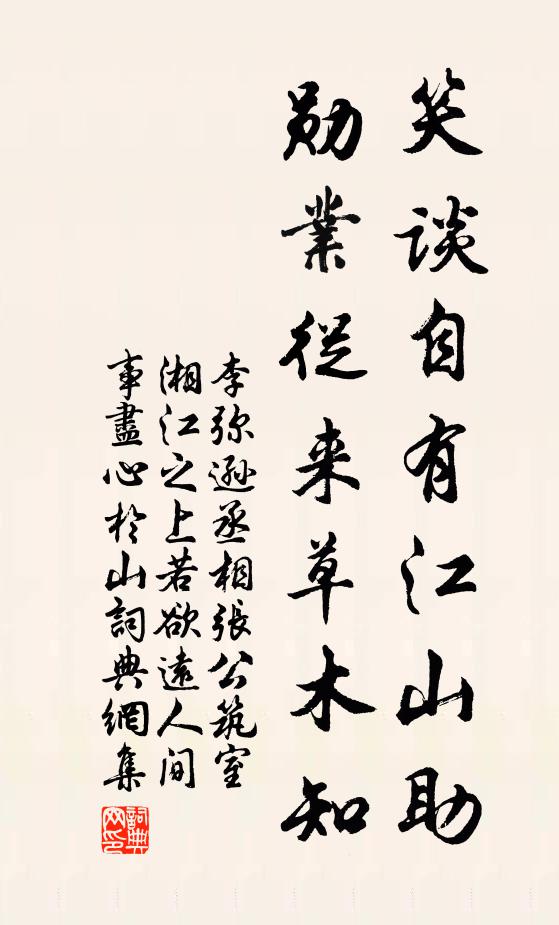 笑談自有江山助
勛業從来草木知
李弥遜丞相張公筑室
湘江之上若欲遠人间
事盡心於山詞典網集
詞典网印